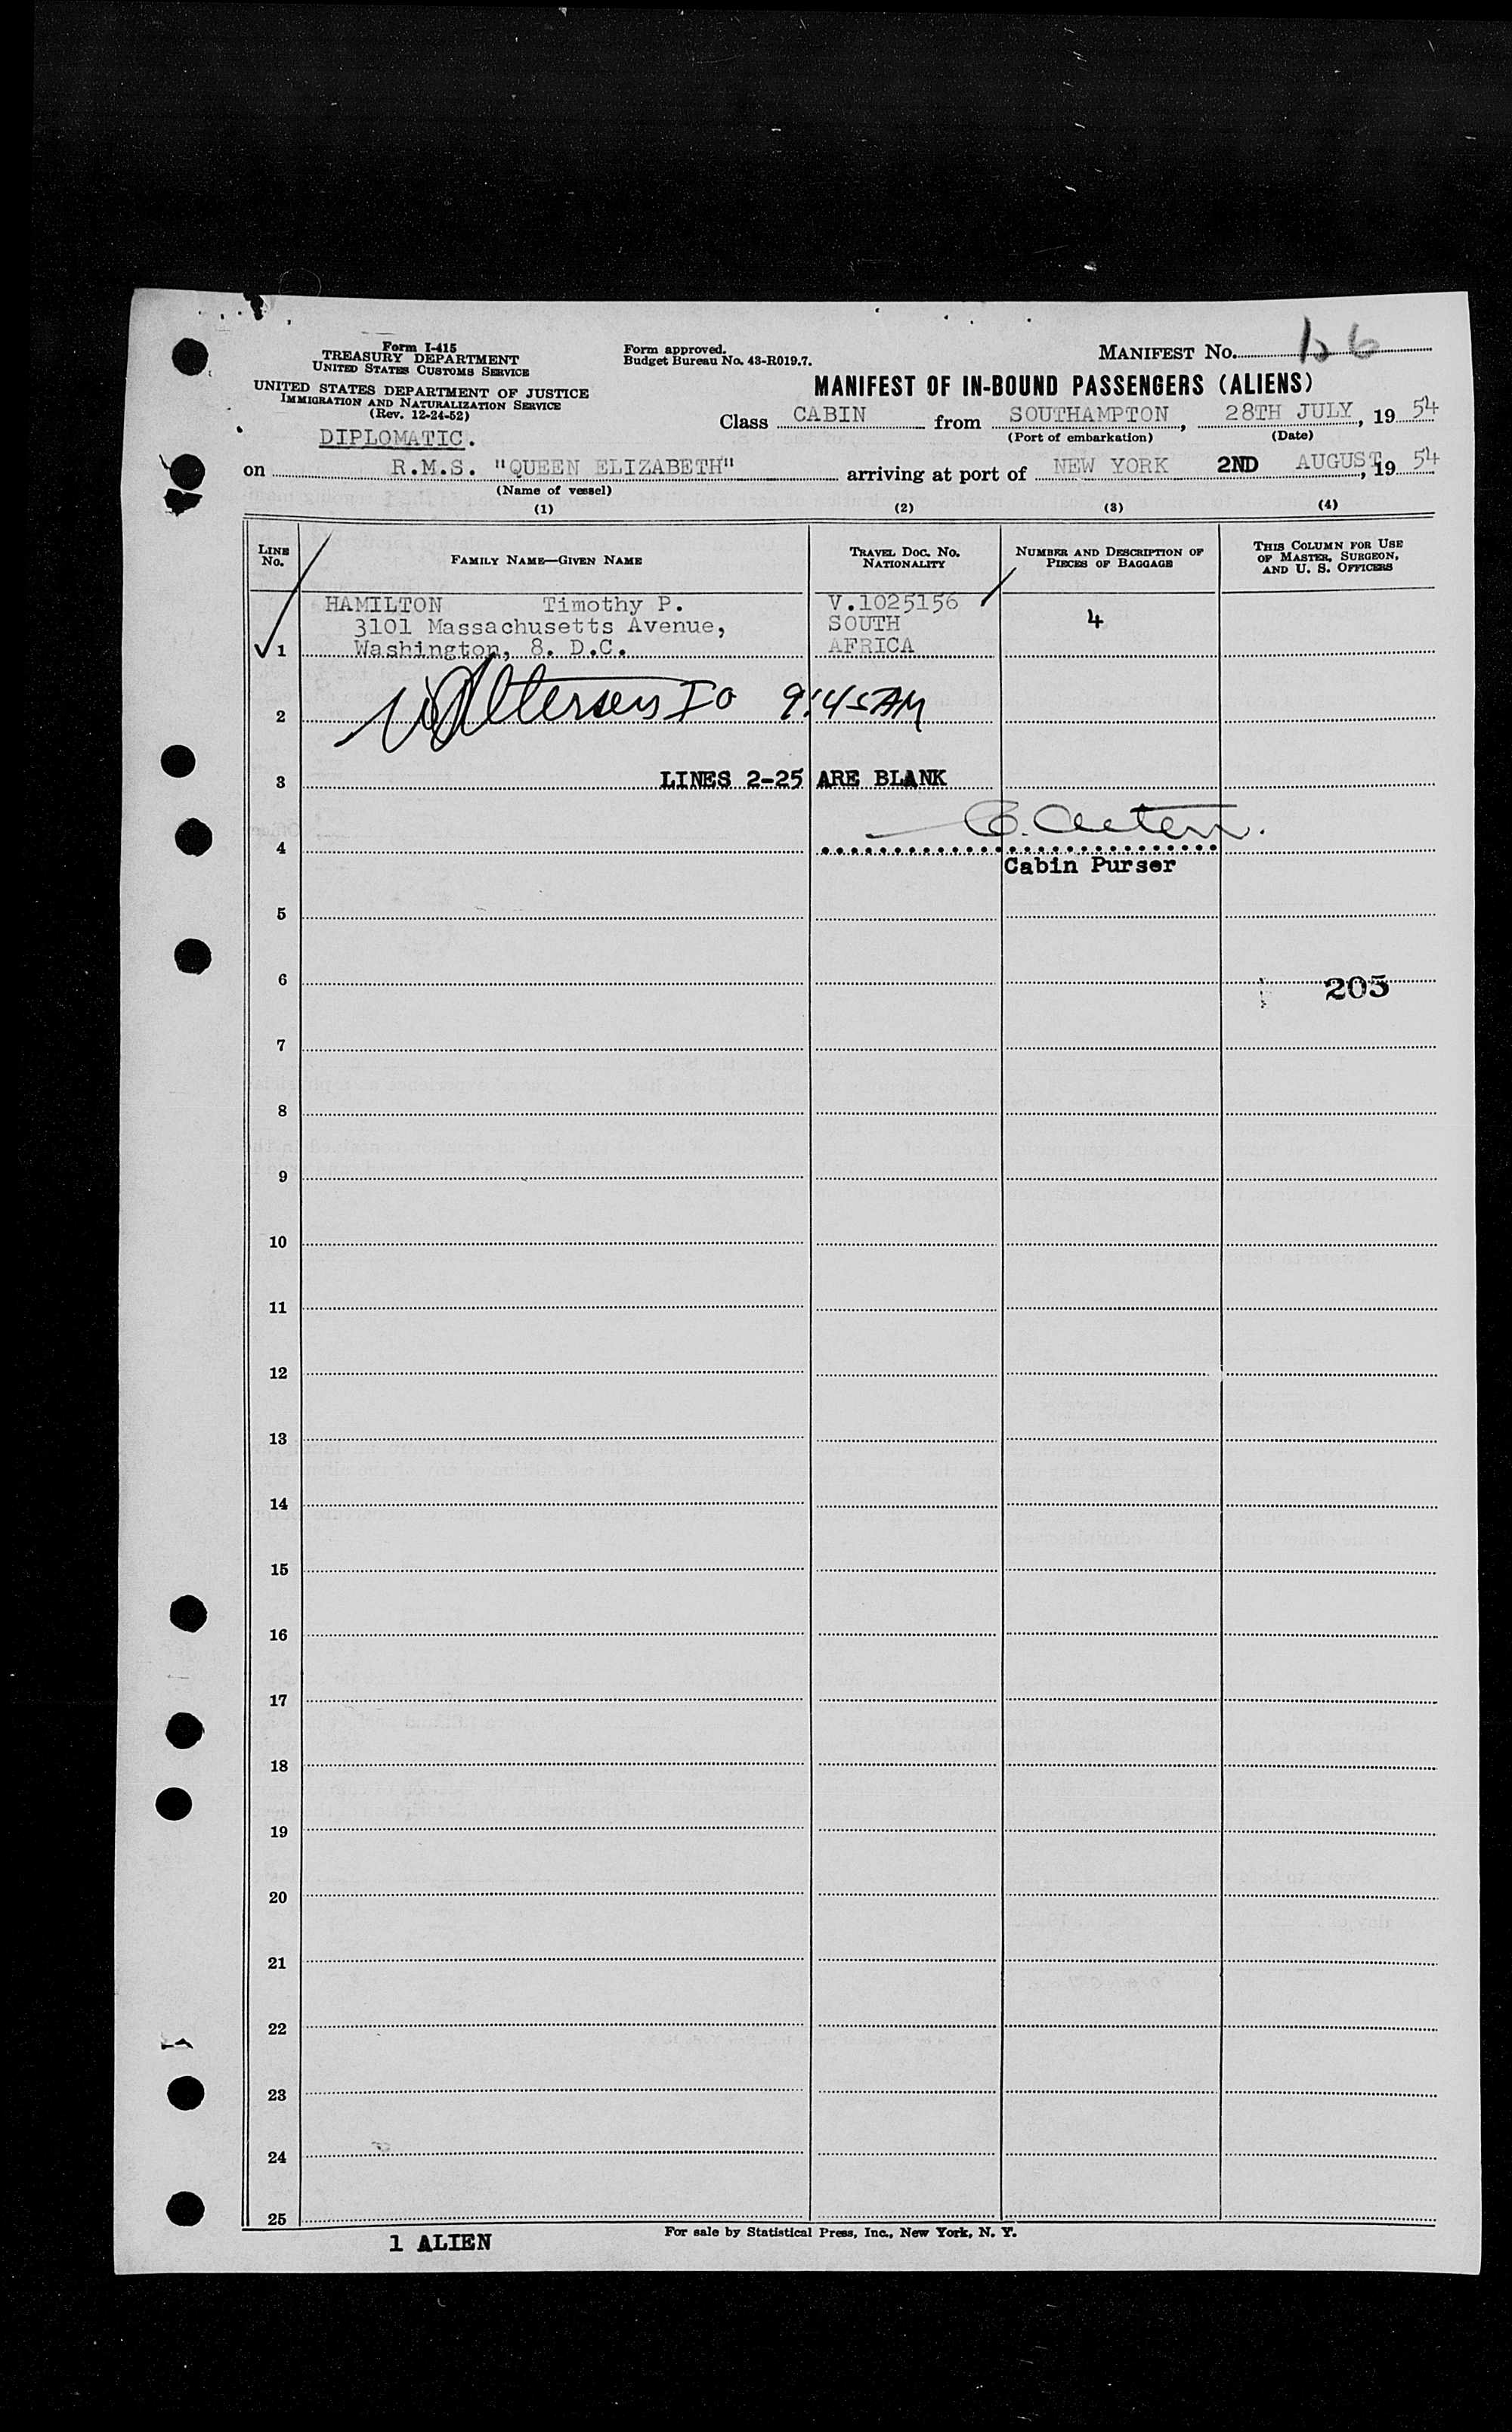 Form I-415
TREASURY DEPARTMENT
UNITED STATES CUSTOMS SERVICE
UNITED STATES DEPARTMENT OF JUSTICE
IMMIGRATION AND NATURALIZATION SERVICE
(Rev. 12-24-52)
DIPLOMATIC.
Form approved.
Budget Bureau No. 43-R019.7.
MANIFEST No.
MANIFEST OF IN-BOUND PASSENGERS (ALIENS)
Class CABIN from SOUTHAMPTON, 28TH JULY, 19 54
(Port of embarkation) (Date)
on R.M.S. "QUEEN ELIZABETH" arriving at port of NEW YORK 2ND AUGUST, 19 54
(Name of vessel)
(1) (2) (3) (4)
LINE No. FAMILY NAME—GIVEN NAME TRAVEL DOC. NO. NATIONALITY NUMBER AND DESCRIPTION OF PIECES OF BAGGAGE THIS COLUMN FOR USE OF MASTER, SURGEON, AND U. S. OFFICERS
HAMILTON Timothy P. V.1025156
3101 Massachusetts Avenue, SOUTH 4
1 Washington, 8. D.C. AFRICA
2 9:45AM
3 LINES 2-25 ARE BLANK
4
Cabin Purser
5
6 205
7
8
9
10
11
12
13
14
15
16
17
18
19
20
21
22
23
24
25
1 ALIEN
For sale by Statistical Press, Inc., New York, N. Y.